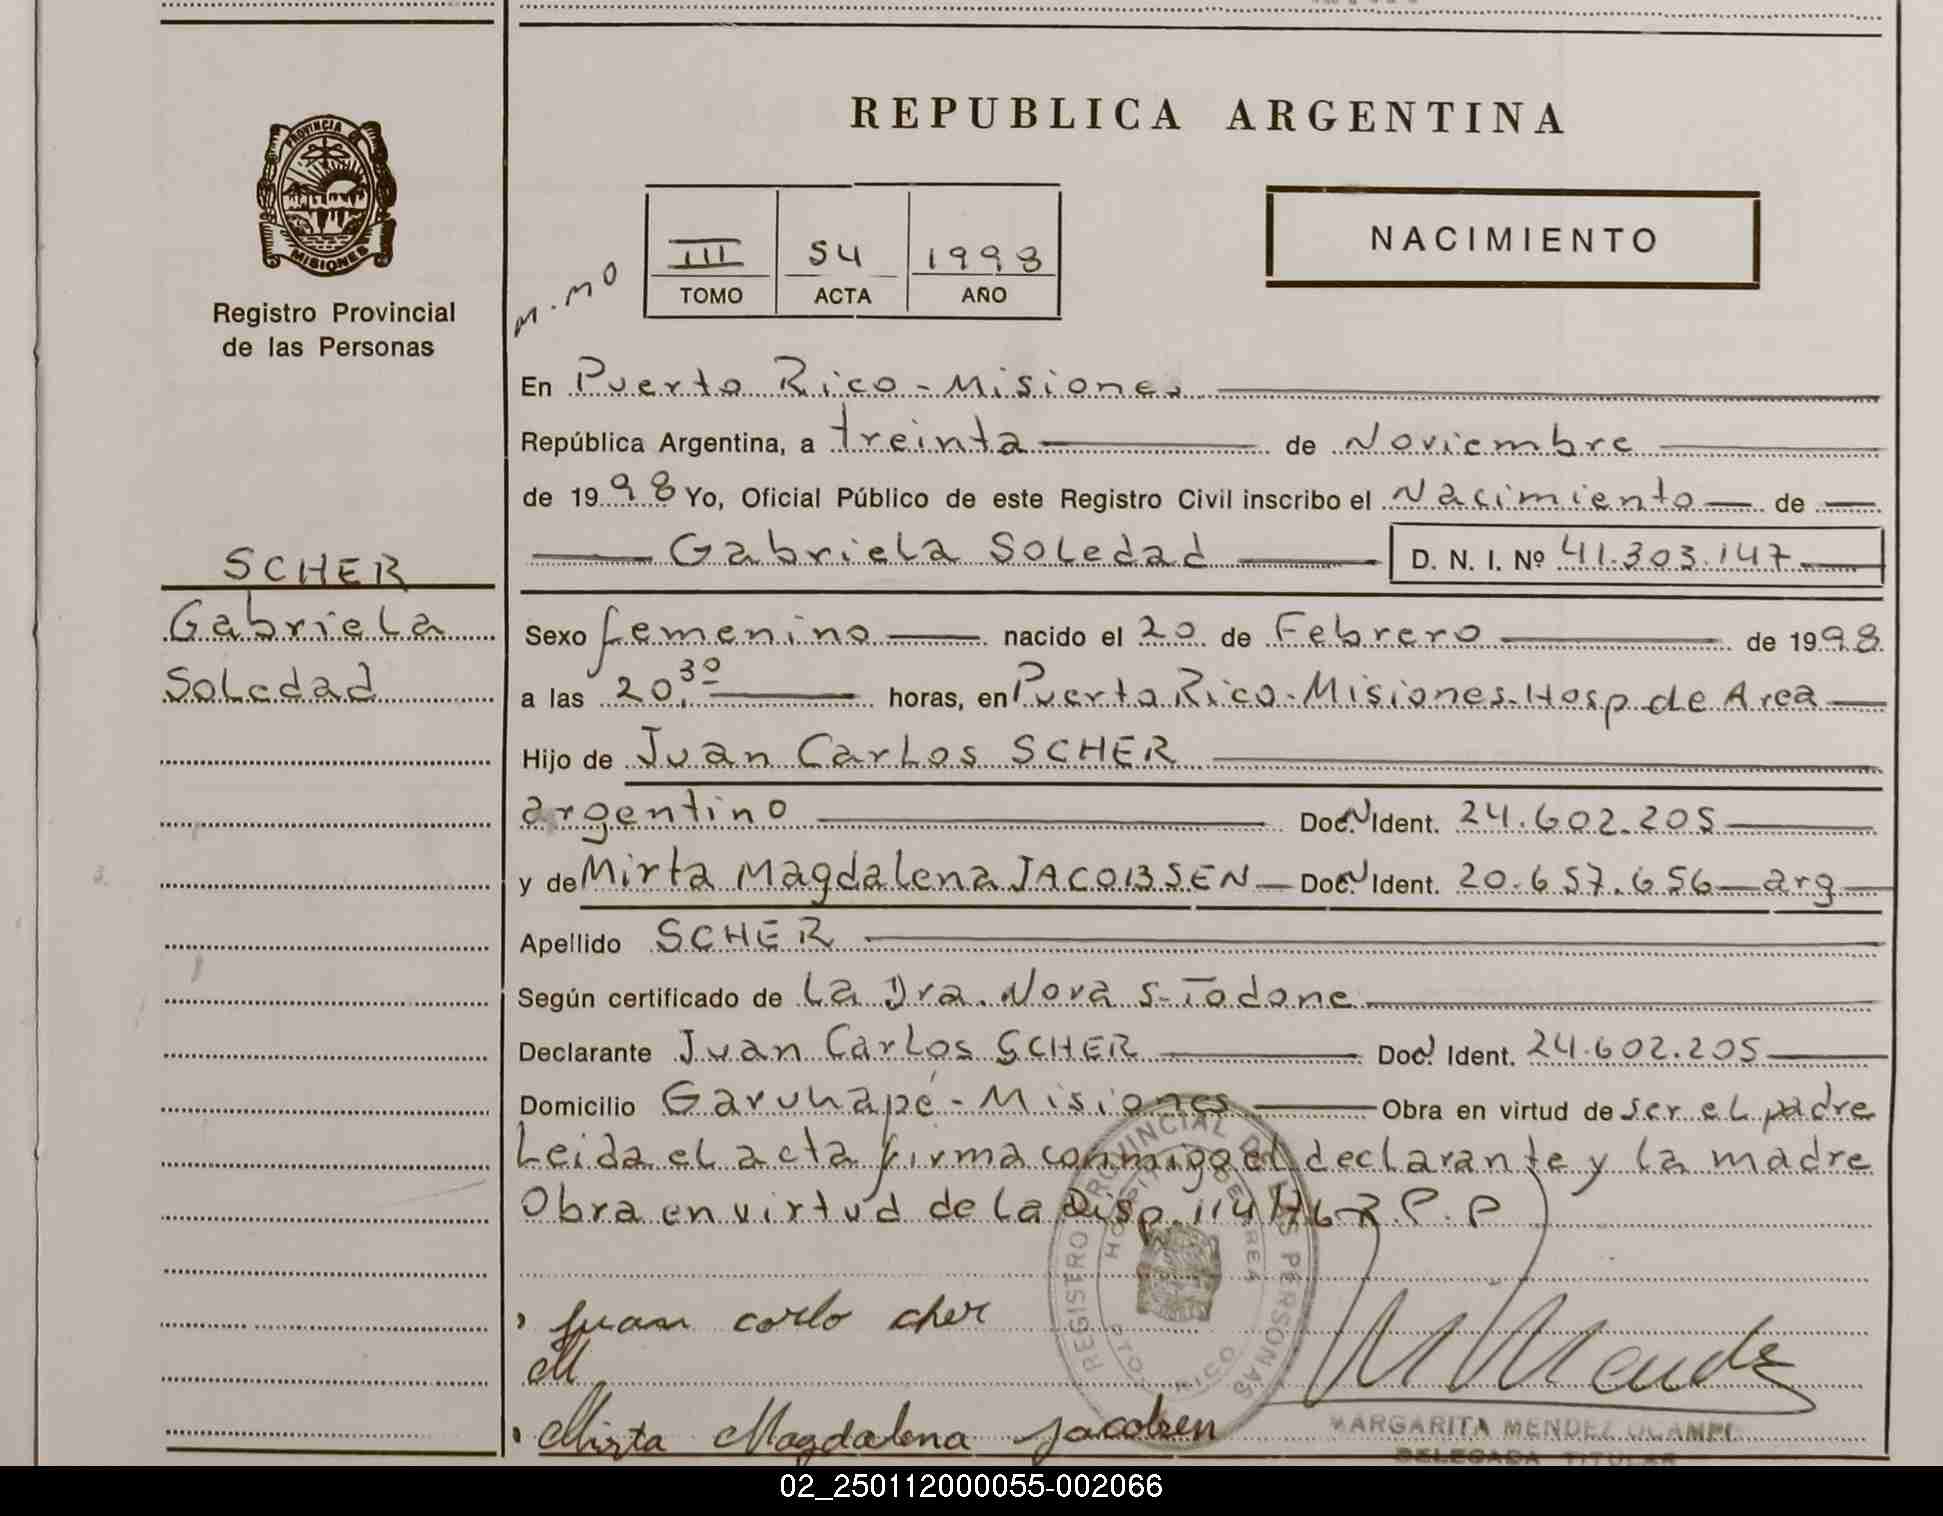 REPUBLICA ARGENTINA
PROVINCIA DE
MISIONES
Registro Provincial
de las Personas
M.MO
III 54 1998
TOMO ACTA AÑO
NACIMIENTO
En Puerto Rico - Misiones
República Argentina, a treinta de Noviembre
de 1998 Yo, Oficial Público de este Registro Civil inscribo el Nacimiento de
Gabriela Soledad D. N. I. Nº 41.303.147
SCHER
Gabriela
Soledad
Sexo femenino nacido el 20 de Febrero de 1998
a las 20,30 horas, en Puerto Rico - Misiones. Hosp de Area
Hijo de Juan Carlos SCHER
argentino Doc. N Ident. 24.602.205
y de Mirta Magdalena JACOBSEN Doc. N Ident. 20.657.656 arg
Apellido SCHER
Según certificado de La Dra. Nora S. Todone
Declarante Juan Carlos SCHER Doc. Ident. 24.602.205
Domicilio Garuhapé - Misiones Obra en virtud de ser el padre
Leida el acta firma conmigo el declarante y la madre
Obra en virtud de la Disp. 114/76 R.P.P
REGISTRO PROVINCIAL DE LAS PERSONAS
HOSPITAL DE AREA
PTO RICO
Juan corlo cher
M
Mirta Magdalena Jacobsen
M Mendez
MARGARITA MENDEZ OCAMPO
DELEGADA TITULAR
02_250112000055-002066